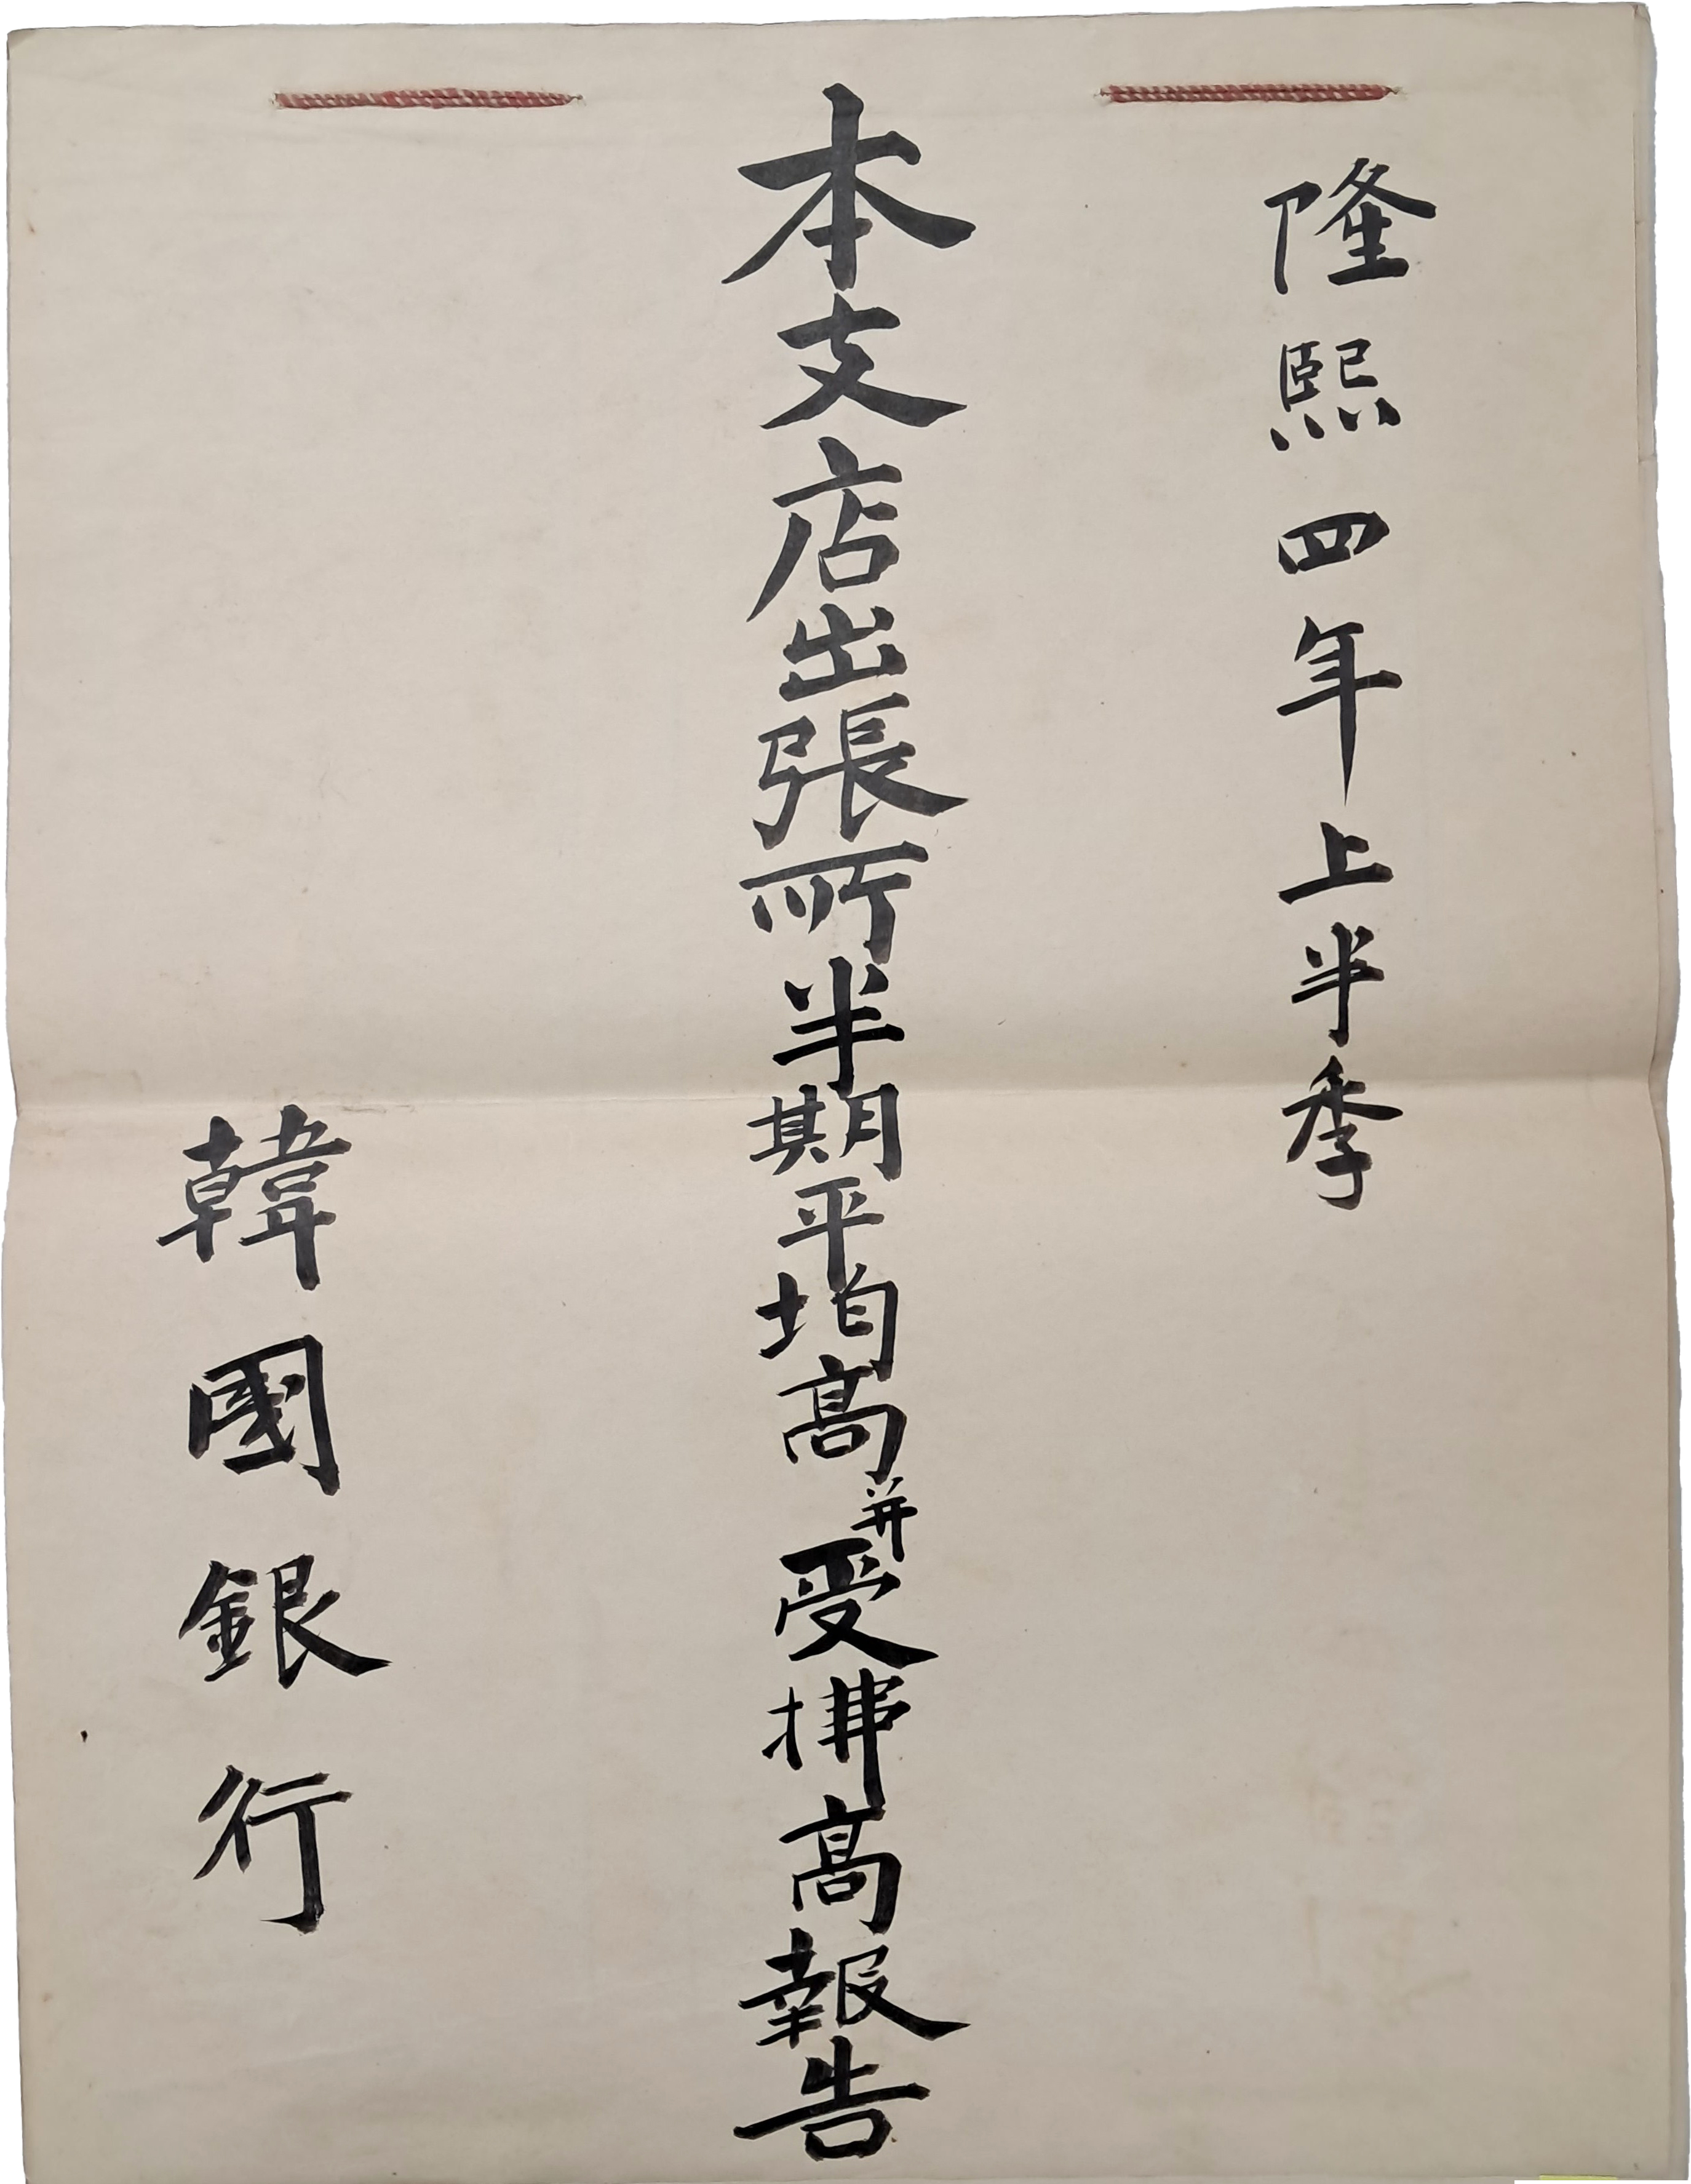 隆熙四年上半季
本支店出張所半期平均高并受拂高報告
韓國銀行